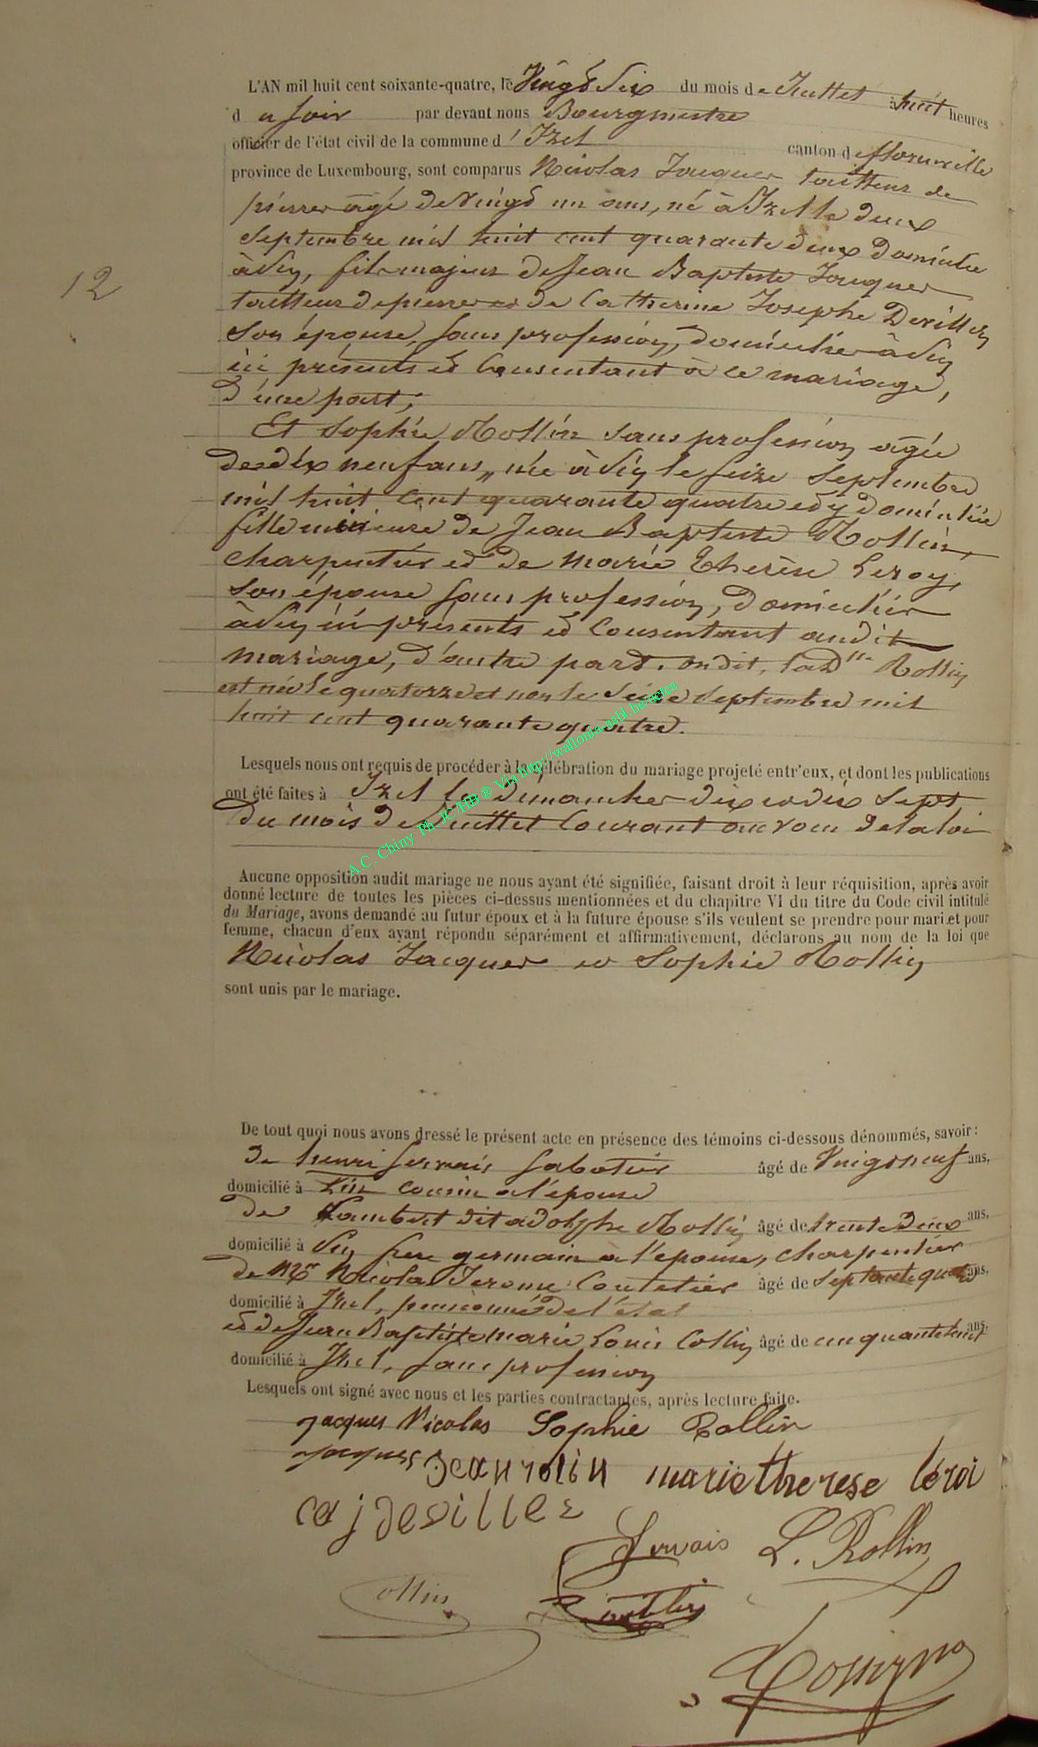 L'AN mil huit cent soixante-quatre, le Vingt Six du mois de Juillet à huit heures
d u soir par devant nous Bourgmestre
officier de l'état civil de la commune d' Izel canton de florenville
province de Luxembourg, sont comparus Nicolas Jacques tailleur de
pierre âgé de Vingt un ans, né à Izel le deux
Septembre mil huit cent quarante deux domicilié
à Pin, fils majeur de Jean Baptiste Jacques
tailleur de pierre et de Catherine Josephe Deville
son épouse, sans profession, domiciliés à
ici présents et Consentant à ce mariage,
d'une part;
12
Et Sophie Rollin sans profession âgée
de dix neuf ans, née à le seize Septembre
mil huit cent quarante quatre et y domiciliée
fille mineure de Jean Baptiste Rollin
charpentier et de Marie Therèse Leroy,
son épouse sans profession, domiciliés
à ici présents et Consentant audit
mariage, d'autre part. on dit, lad.lle Rollin
est née le quatorze et non le Seize Septembre mil
huit cent quarante quatre.
Lesquels nous ont requis de procéder à la célébration du mariage projeté entr'eux, et dont les publications
ont été faites à Izel les dimanches dix et dix Sept
du mois de Juillet Courant au vœu de la loi
A.C. Chiny Ph. JC
Aucune opposition audit mariage ne nous ayant été signifiée, faisant droit à leur réquisition, après avoir
donné lecture de toutes les pièces ci-dessus mentionnées et du chapitre VI du titre du Code civil intitulé
du Mariage, avons demandé au futur époux et à la future épouse s'ils veulent se prendre pour mari et pour
femme, chacun d'eux ayant répondu séparément et affirmativement, déclarons au nom de la loi que
Nicolas Jacques et Sophie Rollin
sont unis par le mariage.
De tout quoi nous avons dressé le présent acte en présence des témoins ci-dessous dénommés, savoir :
de henri Gervais Sabotier âgé de Vingt neuf ans,
domicilié à Pin cousin à l'épouse
de Lambert dit adolphe Rollin âgé de trente Deux ans,
domicilié à frere germain à l'épouse, charpentier
de Mr Nicolas Jerome Coutelier âgé de Septante quatre ans,
domicilié à Izel, pensionné de l'état
et de Jean Baptiste marie Louis Collin âgé de cinquante huit ans,
domicilié à Izel, sans profession
Lesquels ont signé avec nous et les parties contractantes, après lecture faite.
Jacques Nicolas Sophie Rollin
Jacques Jean rolin marie therese léroi
c j deviller
Gervais L. Rollin
Collin